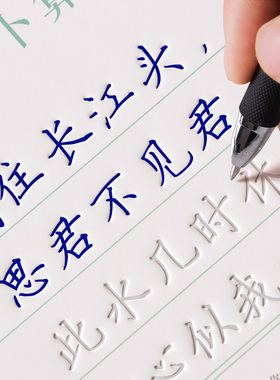 卜算
住长江头，
思君不见君
此水几时休
心似我